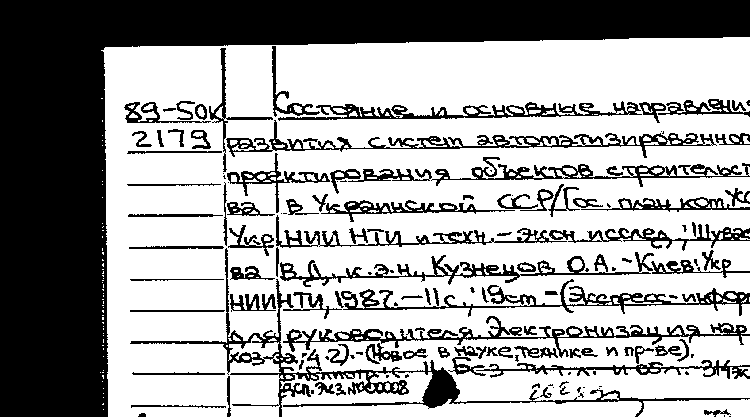 89-50К Состояние и основные направлени
2179 развития систем автоматизированног
проектирования объектов строительст
ва в Украинской ССР/Гос. план. ком. УС
Укр.НИИ НТИ и техн.-экон исслед.; Шува
ва В.Д., к.э.н., Кузнецов О.А. - Киев: Укр
НИИНТИ, 1987. - 11 с., 19 ст. - (Экспресс-информ
для руководителя. Электронизация нар
хоз-ва; 4.2). - (Новое в науке, технике и пр-ве).
Библиогр.: с. 11. Без тит.л. и обл. 314 э